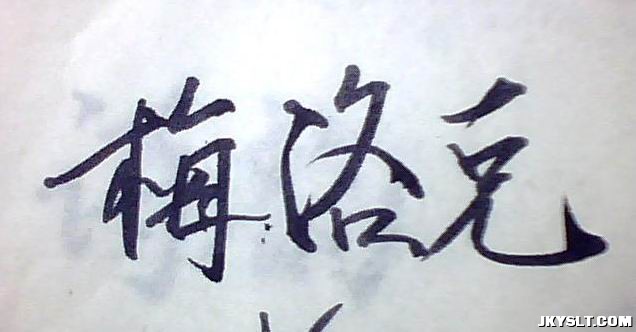 梅洛克
JKYSLT.COM